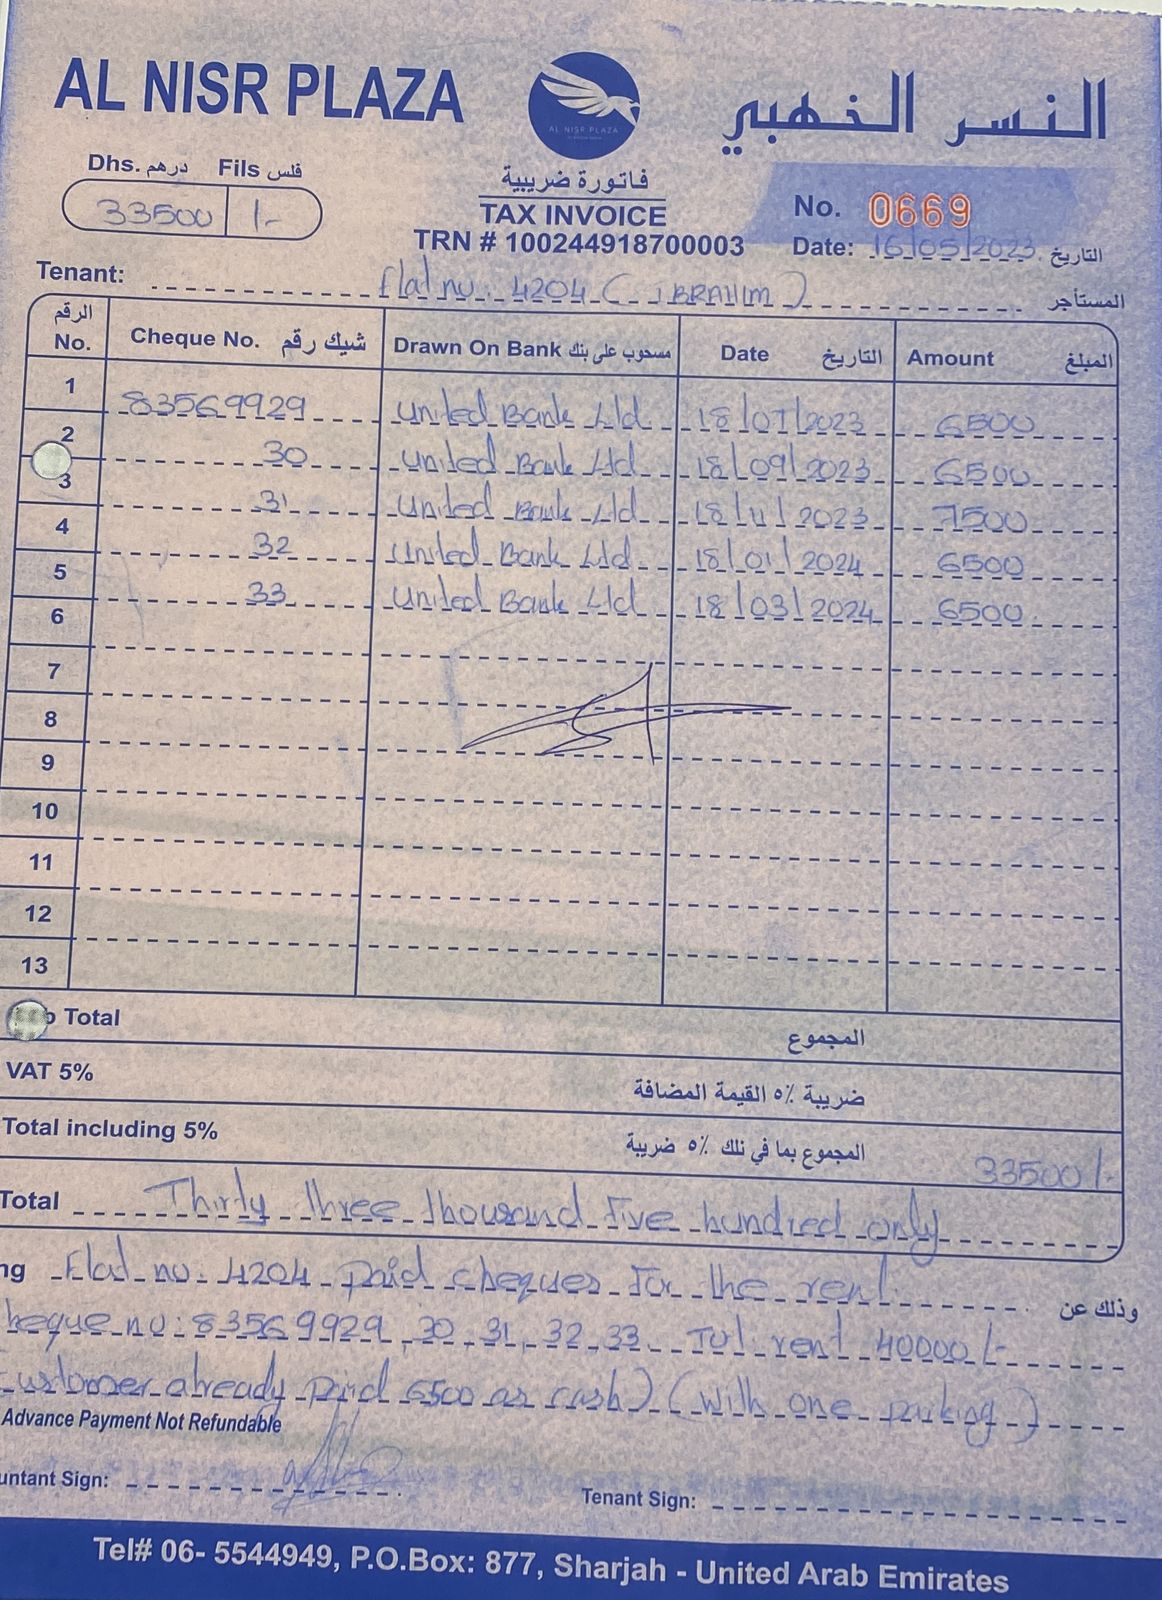 AL NISR PLAZA
AL NISR PLAZA
النسر الذهبي
Dhs. درهم Fils فلس
33500 /-
فاتورة ضريبية
TAX INVOICE
TRN # 100244918700003
No. 0669
Date: 16/05/2023 التاريخ
Tenant: flat no: 4204 ( IBRAHIM ) المستأجر
الرقم No. Cheque No. شيك رقم Drawn On Bank مسحوب على بنك Date التاريخ Amount المبلغ
1 83569929 United Bank Ltd 18/07/2023 6500
2 30 United Bank Ltd 18/09/2023 6500
3 31 United Bank Ltd 18/11/2023 7500
4 32 United Bank Ltd 18/01/2024 6500
5 33 United Bank Ltd 18/03/2024 6500
6
7
8
9
10
11
12
13
b Total المجموع
VAT 5% ضريبة ٥٪ القيمة المضافة
Total including 5% المجموع بما في ذلك ٥٪ ضريبة 33500/-
Total Thirty three thousand Five hundred only
ng Flat no. 4204 paid cheques for the rent وذلك عن
heque no: 83569929, 30, 31, 32, 33 Tot rent 40000/-
ustomer already paid 6500 as cash) (with one parking)
Advance Payment Not Refundable
untant Sign:
Tenant Sign:
Tel# 06- 5544949, P.O.Box: 877, Sharjah - United Arab Emirates